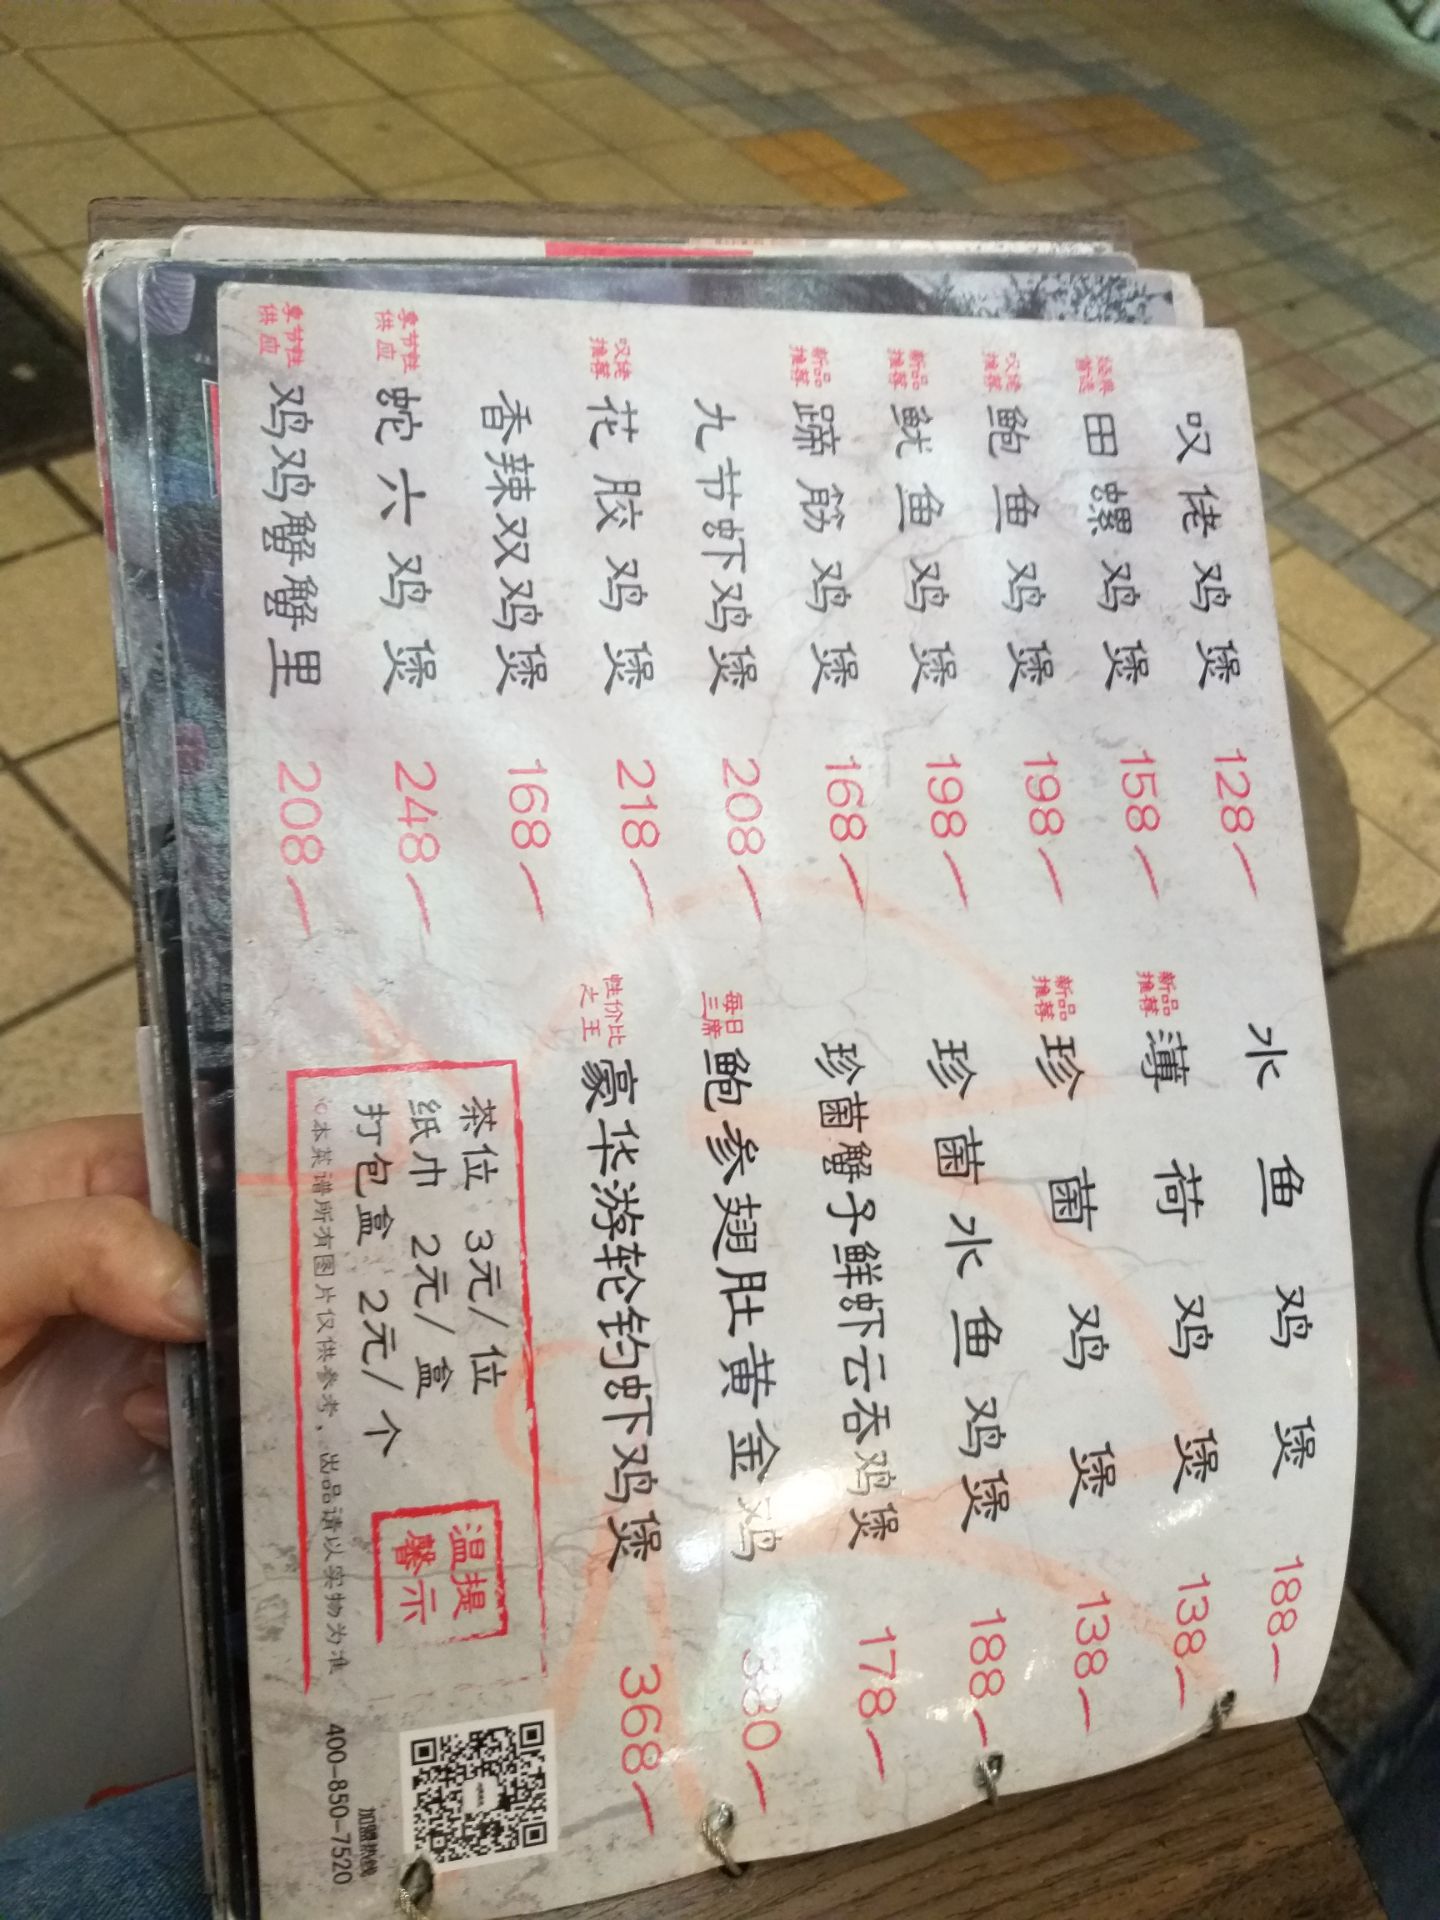 叹佬鸡煲 128
经典首选 田螺鸡煲 158
叹佬推荐 鲍鱼鸡煲 198
新品推荐 鱿鱼鸡煲 198
新品推荐 蹄筋鸡煲 168
九节虾鸡煲 208
叹佬推荐 花胶鸡煲 218
香辣双鸡煲 168
季节性供应 蛇六鸡煲 248
季节性供应 鸡鸡蟹蟹里 208
水鱼鸡煲 188
新品推荐 薄荷鸡煲 138
新品推荐 珍菌鸡煲 138
珍菌水鱼鸡煲 188
珍菌蟹子鲜虾云吞鸡煲 178
每日三席 鲍参翅肚黄金鸡
性价比之王 豪华游轮钓虾鸡煲 368
茶位 3元/位
纸巾 2元/盒
打包盒 2元/个
温馨提示
本菜谱所有图片仅供参考，出品请以实物为准
加盟热线
400-850-7520